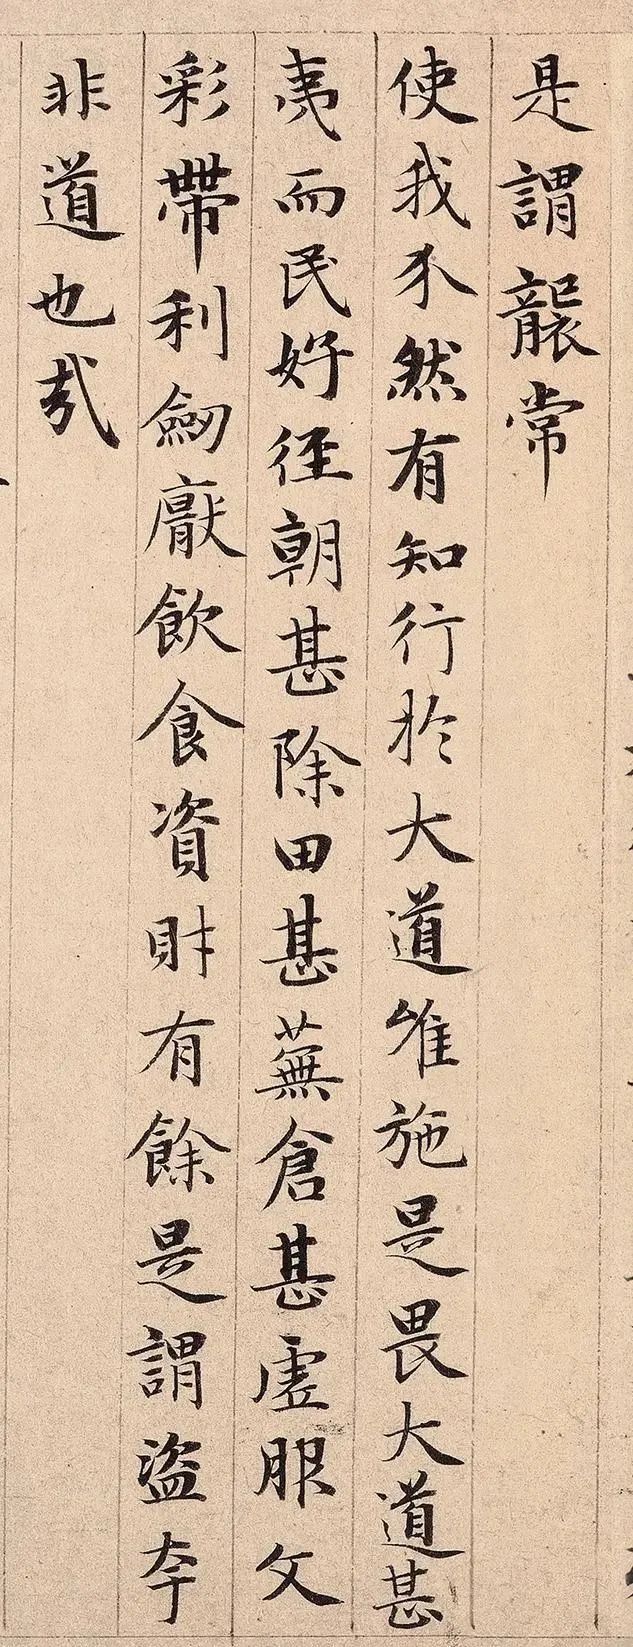 是謂襲常
使我介然有知行於大道唯施是畏大道甚
夷而民好徑朝甚除田甚蕪倉甚虛服文
彩帶利劒厭飲食資財有餘是謂盜夸
非道也哉